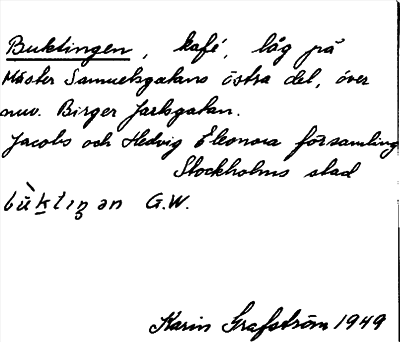 Buktingen, kafé, låg på
Mäster Samuelsgatans östra del, över
nuv. Birger Jarlsgatan.
Jacobs och Hedvig Eleonora församling
Stockholms stad
bùktiŋən G.W.
Karin Grafström 1949